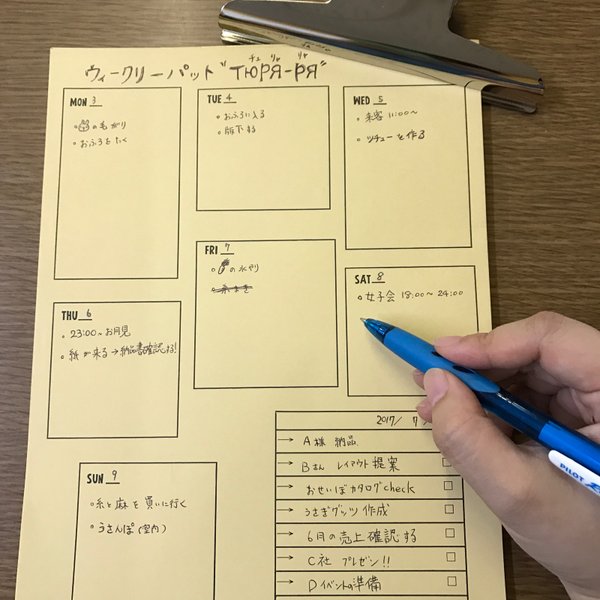 ウィークリーパット "TЮРЯ-РЯ"
チュ リャ リャ
MON 3
のもがり
おふろをたく
TUE 4
おふろに入る
版下する
WED 5
来客 11:00〜
シチューを作る
THU 6
23:00〜お月見
紙が来る→納品書確認する!
FRI 7
の水やり
SAT 8
女子会 18:00〜24:00
SUN 9
糸と麻を買いに行く
うさんぽ(室内)
2017/ 7
→ A様 納品
→ Bさん レイアウト提案
→ おせいぼカタログcheck
→ うさぎグッツ作成
→ 6月の売上確認する
→ C社 プレゼン!!
→ Dイベントの準備
PILOT